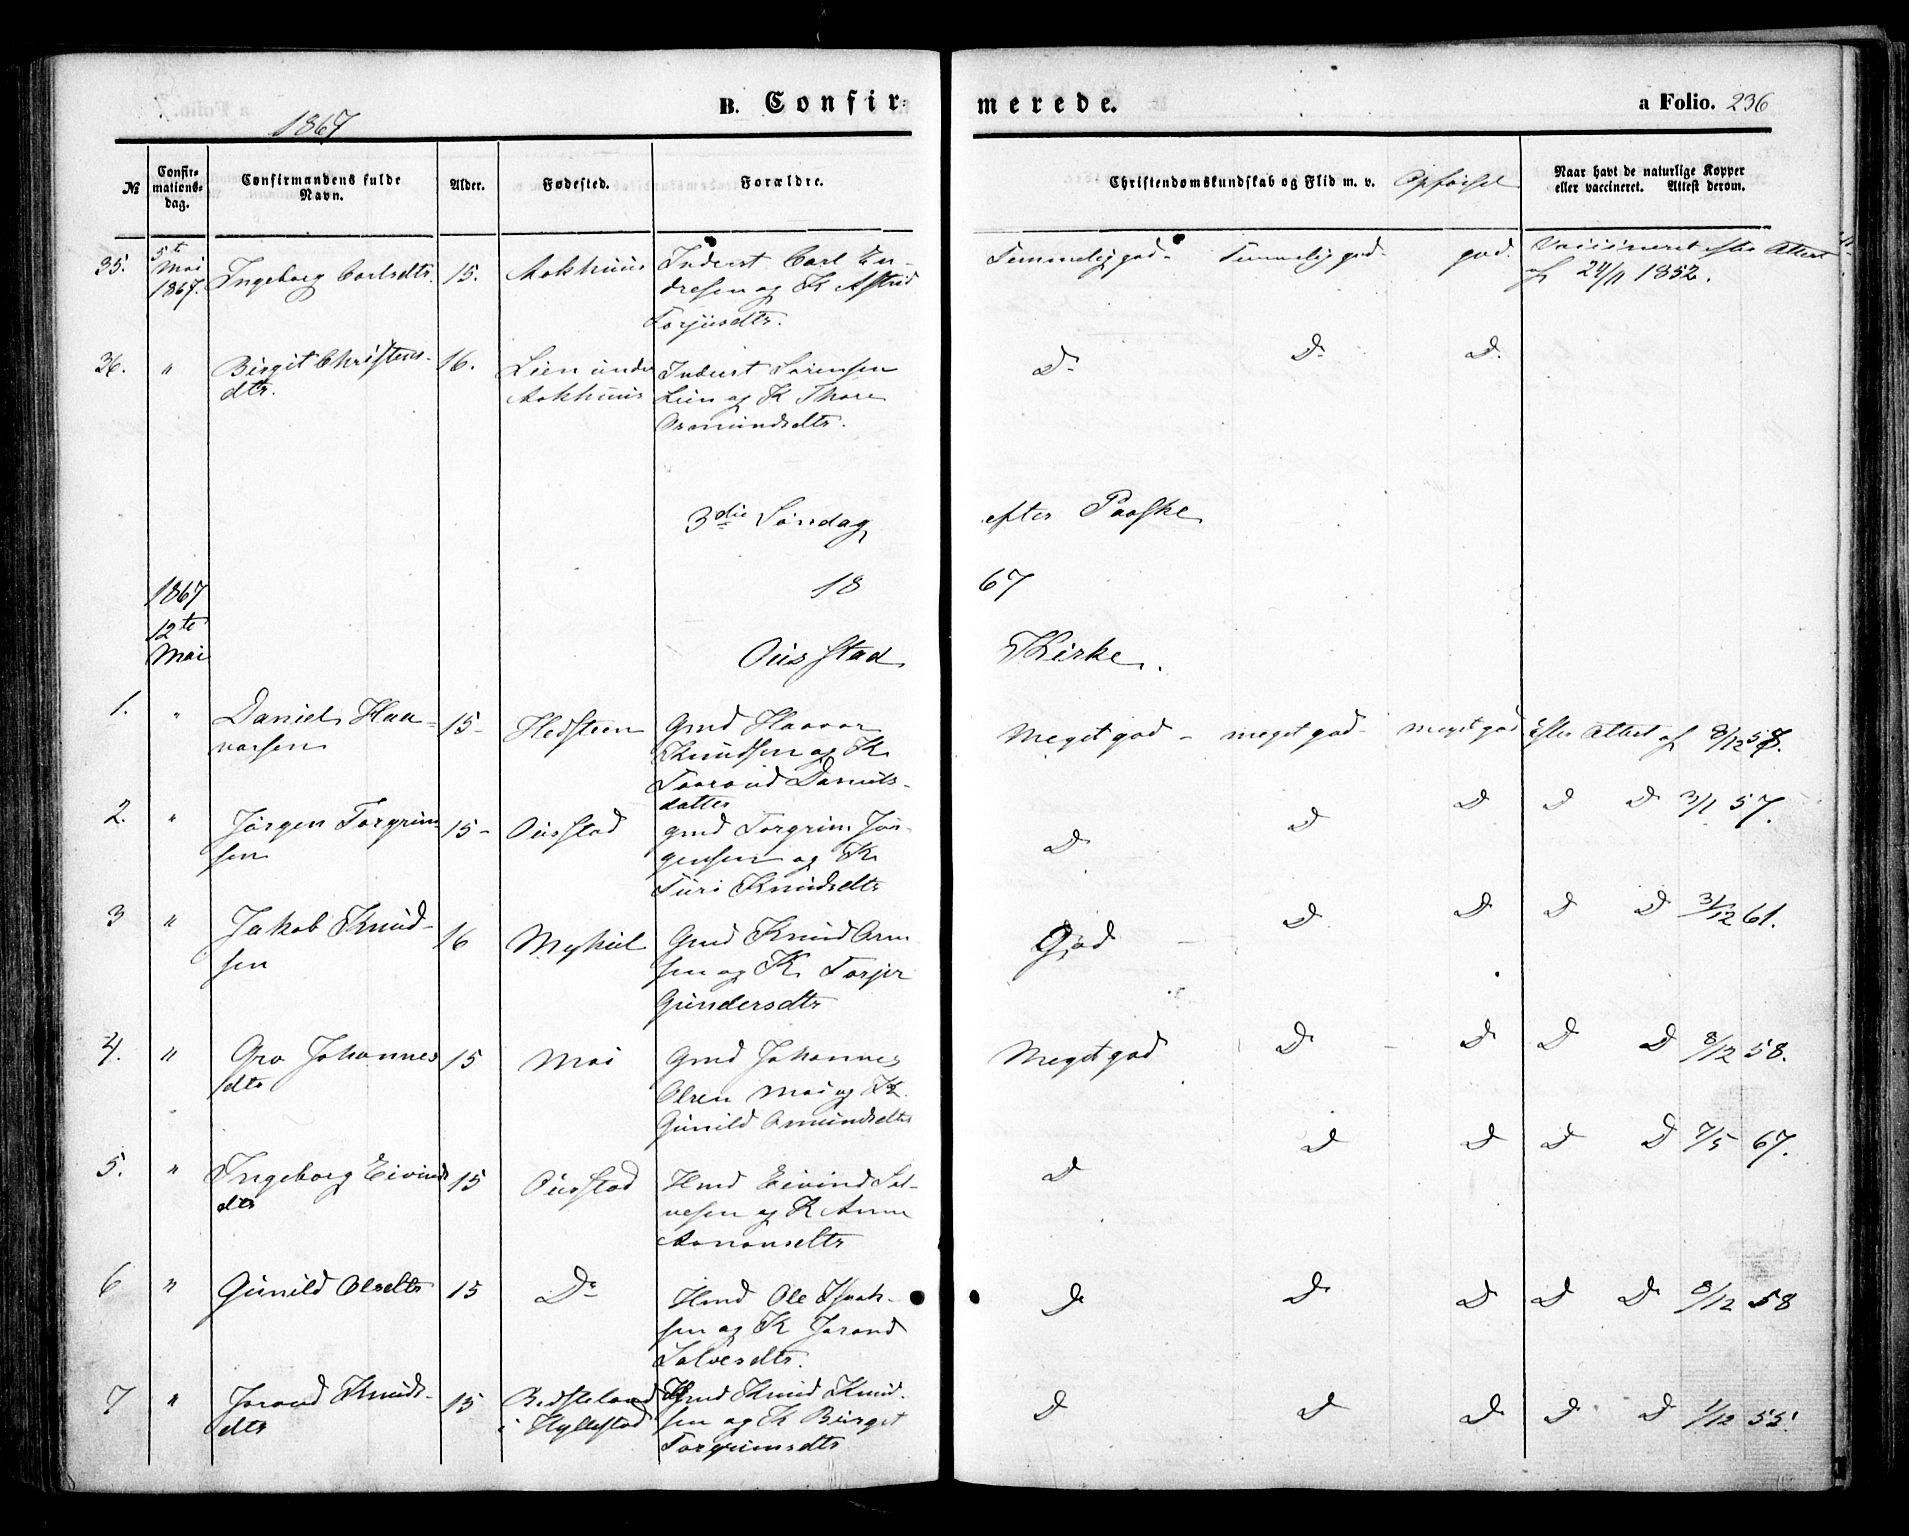 1867
B. Confir-
merede.
a Folio. 236
№
Confir-
mations-
dag.
Confirmandens fulde
Navn.
Alder.
Fødested.
Forældre.
Christendomskundskab og Flid m. v.
Opførsel
Naar havt de naturlige Kopper
eller vaccineret. Attest derom.
35. 5te Mai 1867. Ingeborg Carlsdtr 15. Aakhuus Inderst Carl En-
dresen og K Astrid
Torjusdtr.
Temmelig god - Temmelig god - god. Vaccineret efter Attest
af 24/11 1852.
36. " Birgit Christens-
dtr. 16. Lien under
Aakhuus Inderst Sørensen
Lien og K Thore
Osmundsdtr.
Do Do D.
3die Søndag efter Paaske
1867
12te
Mai
18 67
Ousstad Kirke.
1. " Daniel Haa-
varsen 15- Hedsteen Gmd Haavar
Knudsen og K
Taarand Daniels-
datter
Meget god - meget god - meget god Efter Attest af 8/12 58.
2. " Jørgen Torgrim-
sen 15- Ousstad gmd Torgrim Jør-
gensen og K
Turi Knudsdtr
D D D D D 3/1 57.
3 " Jakob Knud-
sen 16 Myhul Gmd Knud Orm
sen og K Torjer
Gundersdtr
God D D D D 31/12 61.
4. " Gro Johannes
dtr 15 Moi Gmd Johannes
Olsen Moi og K
Gunild Omundsdtr
Meget god D D D D 8/12 58.
5. " Ingeborg Eivinds
dtr 15 Ousstad Hmd Eivind Sal-
vesen og K Anne
Aanonsdtr
D D D D D 7/5 67.
6 " Gunild Olsdtr 15 Do Hmd Ole
sen og K Jorand
Salvesdtr.
D D D D D 8/12 58
7 " Jorand Knuds-
dtr 15
i Hyllestad Gmd Knud Knud-
sen og K Birget
Torgrimsdtr
D D D D D 1/12 55.